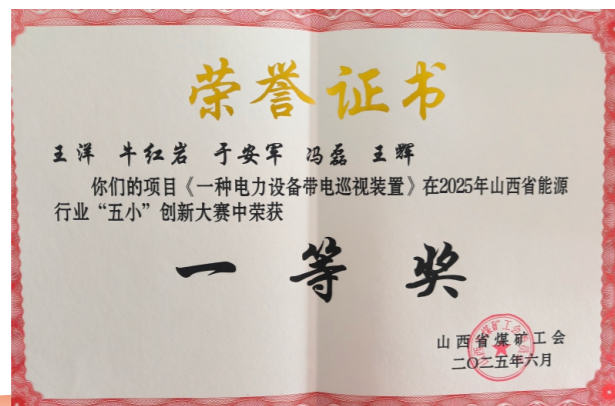 荣誉证书
王洋 牛红岩 于安军 冯磊 王辉
你们的项目《一种电力设备带电巡视装置》在2025年山西省能源
行业“五小”创新大赛中荣获
一等奖
山西省煤矿工会
二〇二五年六月